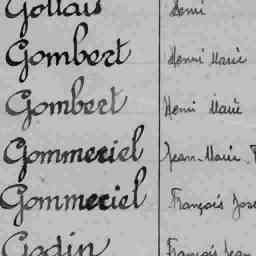 Gollais Henri
Gombert Henri Marie
Gombert Henri Marie
Gommeriel Jean-Marie
Gommeriel François Jose
Godin François Jean